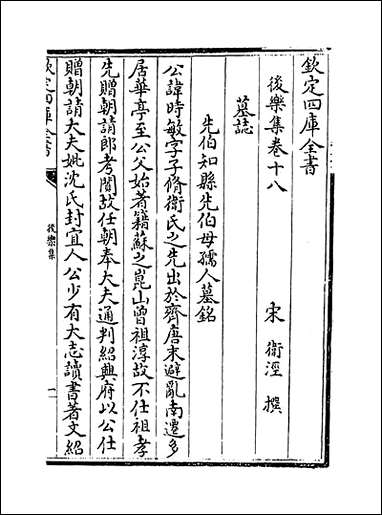 欽定四庫全書
後樂集卷十八
宋 衛涇 撰
墓誌
先伯知縣先伯母孺人墓銘
公諱時敏字子脩衛氏之先出於齊唐末避亂南遷多
居華亭至公父始著籍蘇之崑山曾祖淳故不仕祖孝
先贈朝請郎考闓故任朝奉大夫通判紹興府以公仕
贈朝請大夫妣沈氏封宜人公少有大志讀書著文紹
欽定四庫全書
後樂集
一